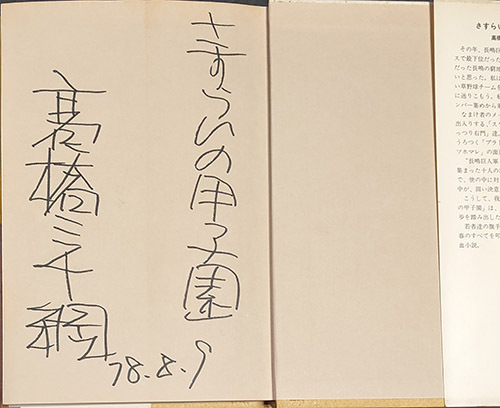 さすらいの甲子園
高橋三千綱
'78.8.9
さすらい
高橋
その年、長嶋巨
スで最下位だった
だった長嶋の窮地
いと思った。私は
い草野球チームを
に送りこもう。私
ンバー集めから
なまけ者のメー
出入りする、「ス
っつり右門」達。
うろつく「ブラド
マホマレ」の面
"長嶋巨人軍
集まった十人の
て、世の中に対
中が、固い決意
こうして、我
の甲子園」は、
歩を踏み出した
若者達の旗手
春のすべてを叩
血小説。